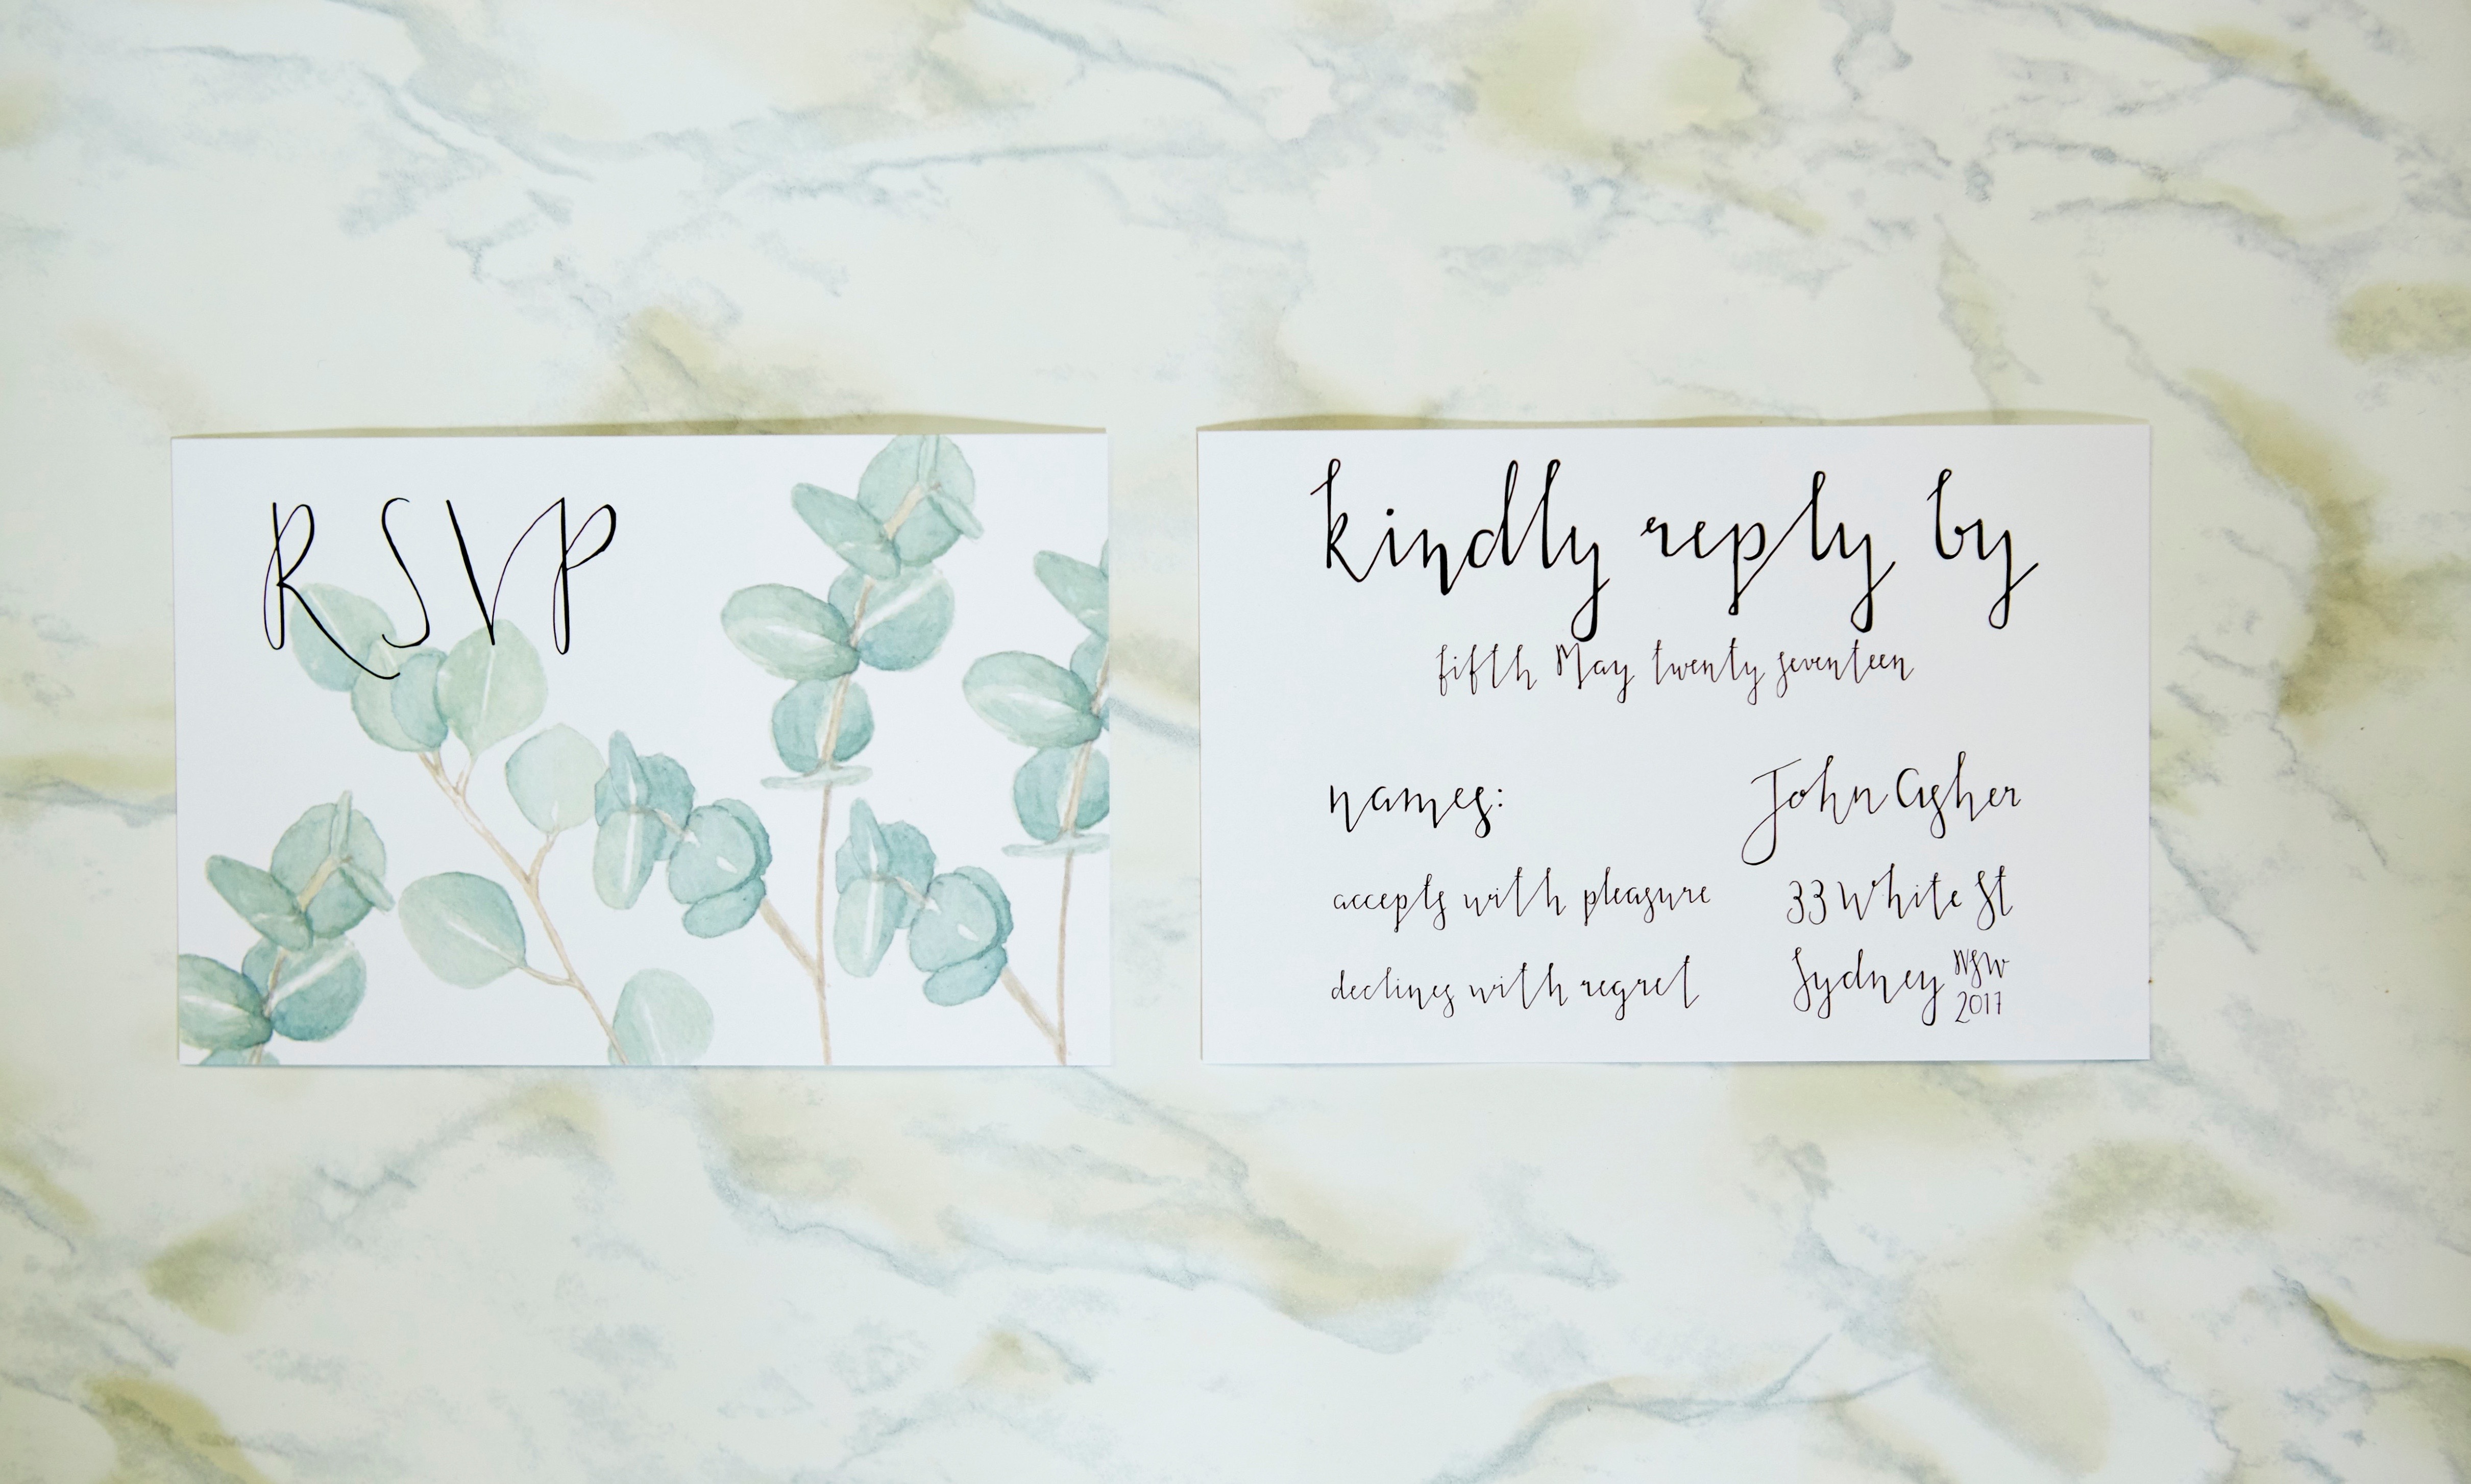 RSVP
kindly reply by
fifth May twenty seventeen
names:
accepts with pleasure
declines with regret
John Asher
33 White St
Sydney NSW
2017